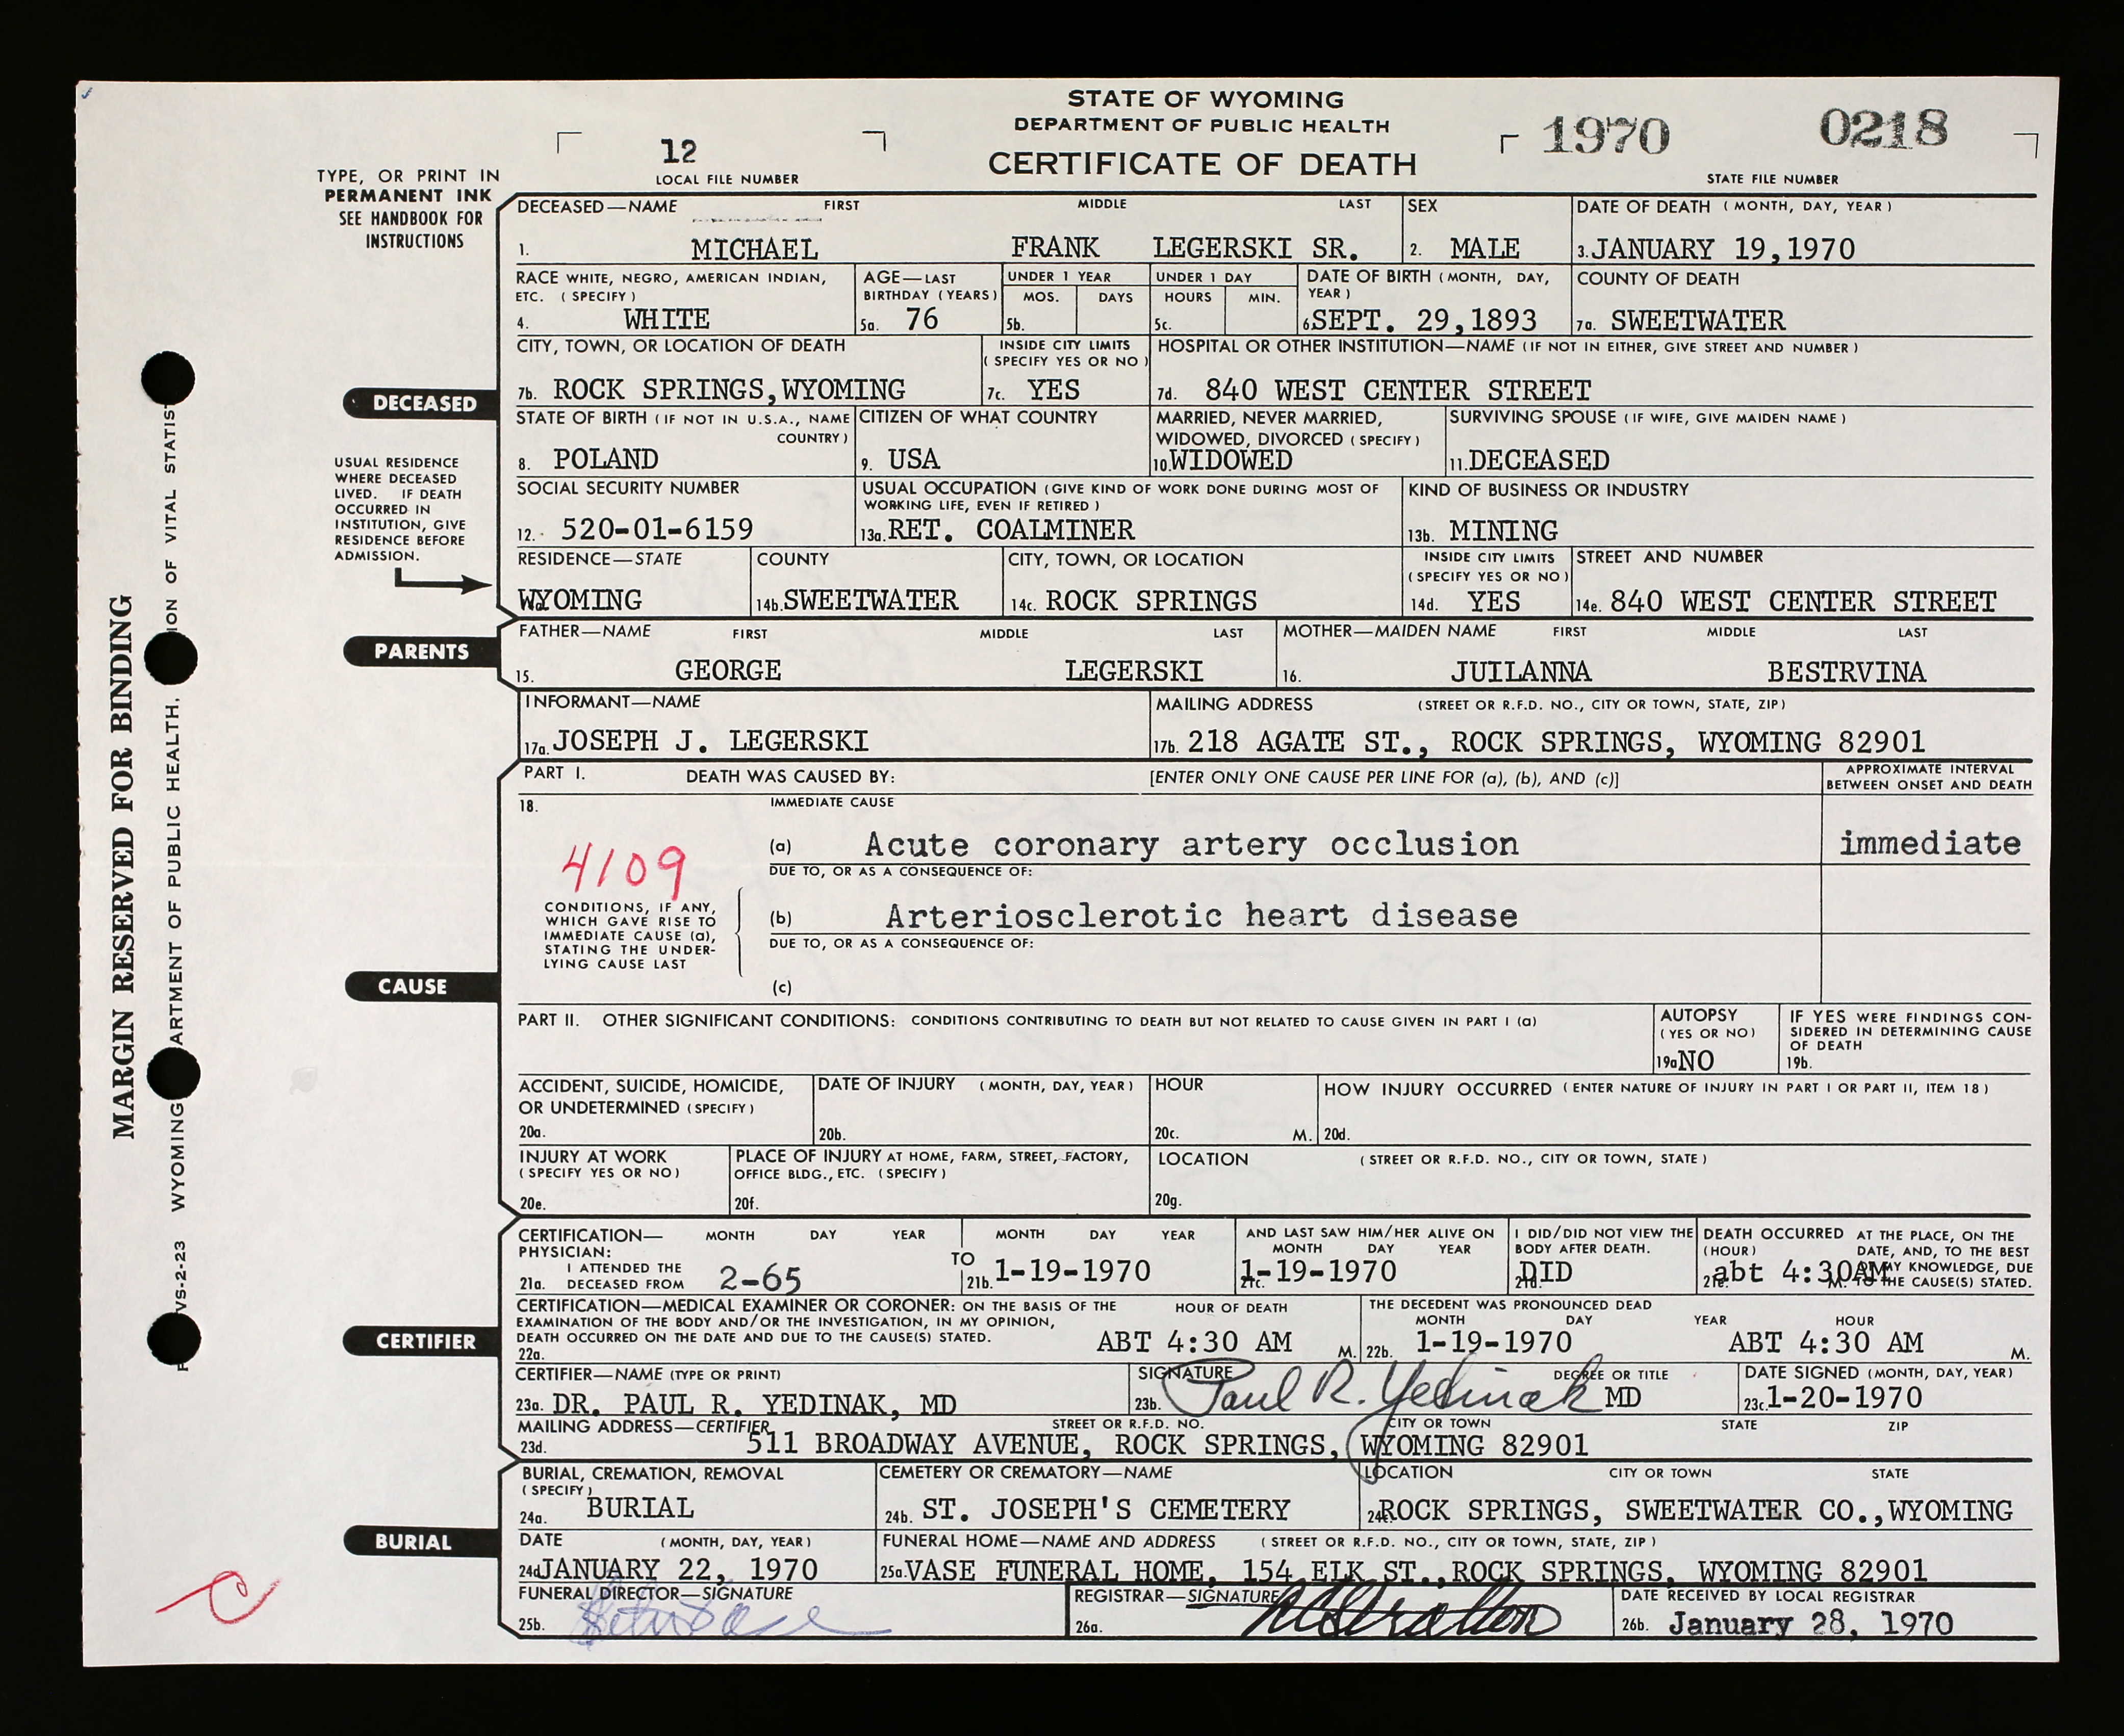 STATE OF WYOMING
DEPARTMENT OF PUBLIC HEALTH
CERTIFICATE OF DEATH
12
LOCAL FILE NUMBER
1970 0218
STATE FILE NUMBER
TYPE, OR PRINT IN
PERMANENT INK
SEE HANDBOOK FOR
INSTRUCTIONS
DECEASED—NAME FIRST MIDDLE LAST
1. MICHAEL FRANK LEGERSKI SR.
SEX
2. MALE
DATE OF DEATH (MONTH, DAY, YEAR)
3. JANUARY 19,1970
RACE WHITE, NEGRO, AMERICAN INDIAN,
ETC. (SPECIFY)
4. WHITE
AGE—LAST
BIRTHDAY (YEARS)
5a. 76
UNDER 1 YEAR
MOS. DAYS
5b.
UNDER 1 DAY
HOURS MIN.
5c.
DATE OF BIRTH (MONTH, DAY,
YEAR)
6 SEPT. 29,1893
COUNTY OF DEATH
7a. SWEETWATER
CITY, TOWN, OR LOCATION OF DEATH
7b. ROCK SPRINGS,WYOMING
INSIDE CITY LIMITS
(SPECIFY YES OR NO)
7c. YES
HOSPITAL OR OTHER INSTITUTION—NAME (IF NOT IN EITHER, GIVE STREET AND NUMBER)
7d. 840 WEST CENTER STREET
DECEASED
STATE OF BIRTH (IF NOT IN U.S.A., NAME
COUNTRY)
8. POLAND
CITIZEN OF WHAT COUNTRY
9. USA
MARRIED, NEVER MARRIED,
WIDOWED, DIVORCED (SPECIFY)
10. WIDOWED
SURVIVING SPOUSE (IF WIFE, GIVE MAIDEN NAME)
11. DECEASED
USUAL RESIDENCE
WHERE DECEASED
LIVED. IF DEATH
OCCURRED IN
INSTITUTION, GIVE
RESIDENCE BEFORE
ADMISSION.
SOCIAL SECURITY NUMBER
12. 520-01-6159
USUAL OCCUPATION (GIVE KIND OF WORK DONE DURING MOST OF
WORKING LIFE, EVEN IF RETIRED)
13a. RET. COALMINER
KIND OF BUSINESS OR INDUSTRY
13b. MINING
RESIDENCE—STATE
WYOMING
COUNTY
14b. SWEETWATER
CITY, TOWN, OR LOCATION
14c. ROCK SPRINGS
INSIDE CITY LIMITS
(SPECIFY YES OR NO)
14d. YES
STREET AND NUMBER
14e. 840 WEST CENTER STREET
PARENTS
FATHER—NAME FIRST MIDDLE LAST
15. GEORGE LEGERSKI
MOTHER—MAIDEN NAME FIRST MIDDLE LAST
16. JUILANNA BESTRVINA
INFORMANT—NAME
17a. JOSEPH J. LEGERSKI
MAILING ADDRESS (STREET OR R.F.D. NO., CITY OR TOWN, STATE, ZIP)
17b. 218 AGATE ST., ROCK SPRINGS, WYOMING 82901
PART I. DEATH WAS CAUSED BY: [ENTER ONLY ONE CAUSE PER LINE FOR (a), (b), AND (c)]
APPROXIMATE INTERVAL
BETWEEN ONSET AND DEATH
18. IMMEDIATE CAUSE
(a) Acute coronary artery occlusion immediate
4109
DUE TO, OR AS A CONSEQUENCE OF:
CONDITIONS, IF ANY,
WHICH GAVE RISE TO
IMMEDIATE CAUSE (a),
STATING THE UNDER-
LYING CAUSE LAST
(b) Arteriosclerotic heart disease
DUE TO, OR AS A CONSEQUENCE OF:
(c)
CAUSE
PART II. OTHER SIGNIFICANT CONDITIONS: CONDITIONS CONTRIBUTING TO DEATH BUT NOT RELATED TO CAUSE GIVEN IN PART I (a)
AUTOPSY
(YES OR NO)
19a NO
IF YES WERE FINDINGS CON-
SIDERED IN DETERMINING CAUSE
OF DEATH
19b.
ACCIDENT, SUICIDE, HOMICIDE,
OR UNDETERMINED (SPECIFY)
20a.
DATE OF INJURY (MONTH, DAY, YEAR)
20b.
HOUR
20c. M.
HOW INJURY OCCURRED (ENTER NATURE OF INJURY IN PART I OR PART II, ITEM 18)
20d.
INJURY AT WORK
(SPECIFY YES OR NO)
20e.
PLACE OF INJURY AT HOME, FARM, STREET, FACTORY,
OFFICE BLDG., ETC. (SPECIFY)
20f.
LOCATION (STREET OR R.F.D. NO., CITY OR TOWN, STATE)
20g.
CERTIFICATION— MONTH DAY YEAR
PHYSICIAN:
I ATTENDED THE
21a. DECEASED FROM 2-65
TO
MONTH DAY YEAR
21b. 1-19-1970
AND LAST SAW HIM/HER ALIVE ON
MONTH DAY YEAR
21c. 1-19-1970
I DID/DID NOT VIEW THE
BODY AFTER DEATH.
21d. DID
DEATH OCCURRED AT THE PLACE, ON THE
(HOUR) DATE, AND, TO THE BEST
OF MY KNOWLEDGE, DUE
21e. abt 4:30AM M. TO THE CAUSE(S) STATED.
CERTIFIER
CERTIFICATION—MEDICAL EXAMINER OR CORONER: ON THE BASIS OF THE
EXAMINATION OF THE BODY AND/OR THE INVESTIGATION, IN MY OPINION,
DEATH OCCURRED ON THE DATE AND DUE TO THE CAUSE(S) STATED.
22a.
HOUR OF DEATH
ABT 4:30 AM M.
THE DECEDENT WAS PRONOUNCED DEAD
MONTH DAY YEAR HOUR
22b. 1-19-1970 ABT 4:30 AM M.
CERTIFIER—NAME (TYPE OR PRINT)
23a. DR. PAUL R. YEDINAK, MD
SIGNATURE DEGREE OR TITLE
23b. Paul R. Yedinak MD
DATE SIGNED (MONTH, DAY, YEAR)
23c. 1-20-1970
MAILING ADDRESS—CERTIFIER STREET OR R.F.D. NO. CITY OR TOWN STATE ZIP
23d. 511 BROADWAY AVENUE, ROCK SPRINGS, WYOMING 82901
BURIAL
BURIAL, CREMATION, REMOVAL
(SPECIFY)
24a. BURIAL
CEMETERY OR CREMATORY—NAME
24b. ST. JOSEPH'S CEMETERY
LOCATION CITY OR TOWN STATE
24c. ROCK SPRINGS, SWEETWATER CO.,WYOMING
DATE (MONTH, DAY, YEAR)
24d JANUARY 22, 1970
FUNERAL HOME—NAME AND ADDRESS (STREET OR R.F.D. NO., CITY OR TOWN, STATE, ZIP)
25a. VASE FUNERAL HOME, 154 ELK ST.,ROCK SPRINGS, WYOMING 82901
FUNERAL DIRECTOR—SIGNATURE
25b.
REGISTRAR—SIGNATURE
26a.
DATE RECEIVED BY LOCAL REGISTRAR
26b. January 28, 1970
MARGIN RESERVED FOR BINDING
VS-2-23 WYOMING ARTMENT OF PUBLIC HEALTH, ION OF VITAL STATIST
C